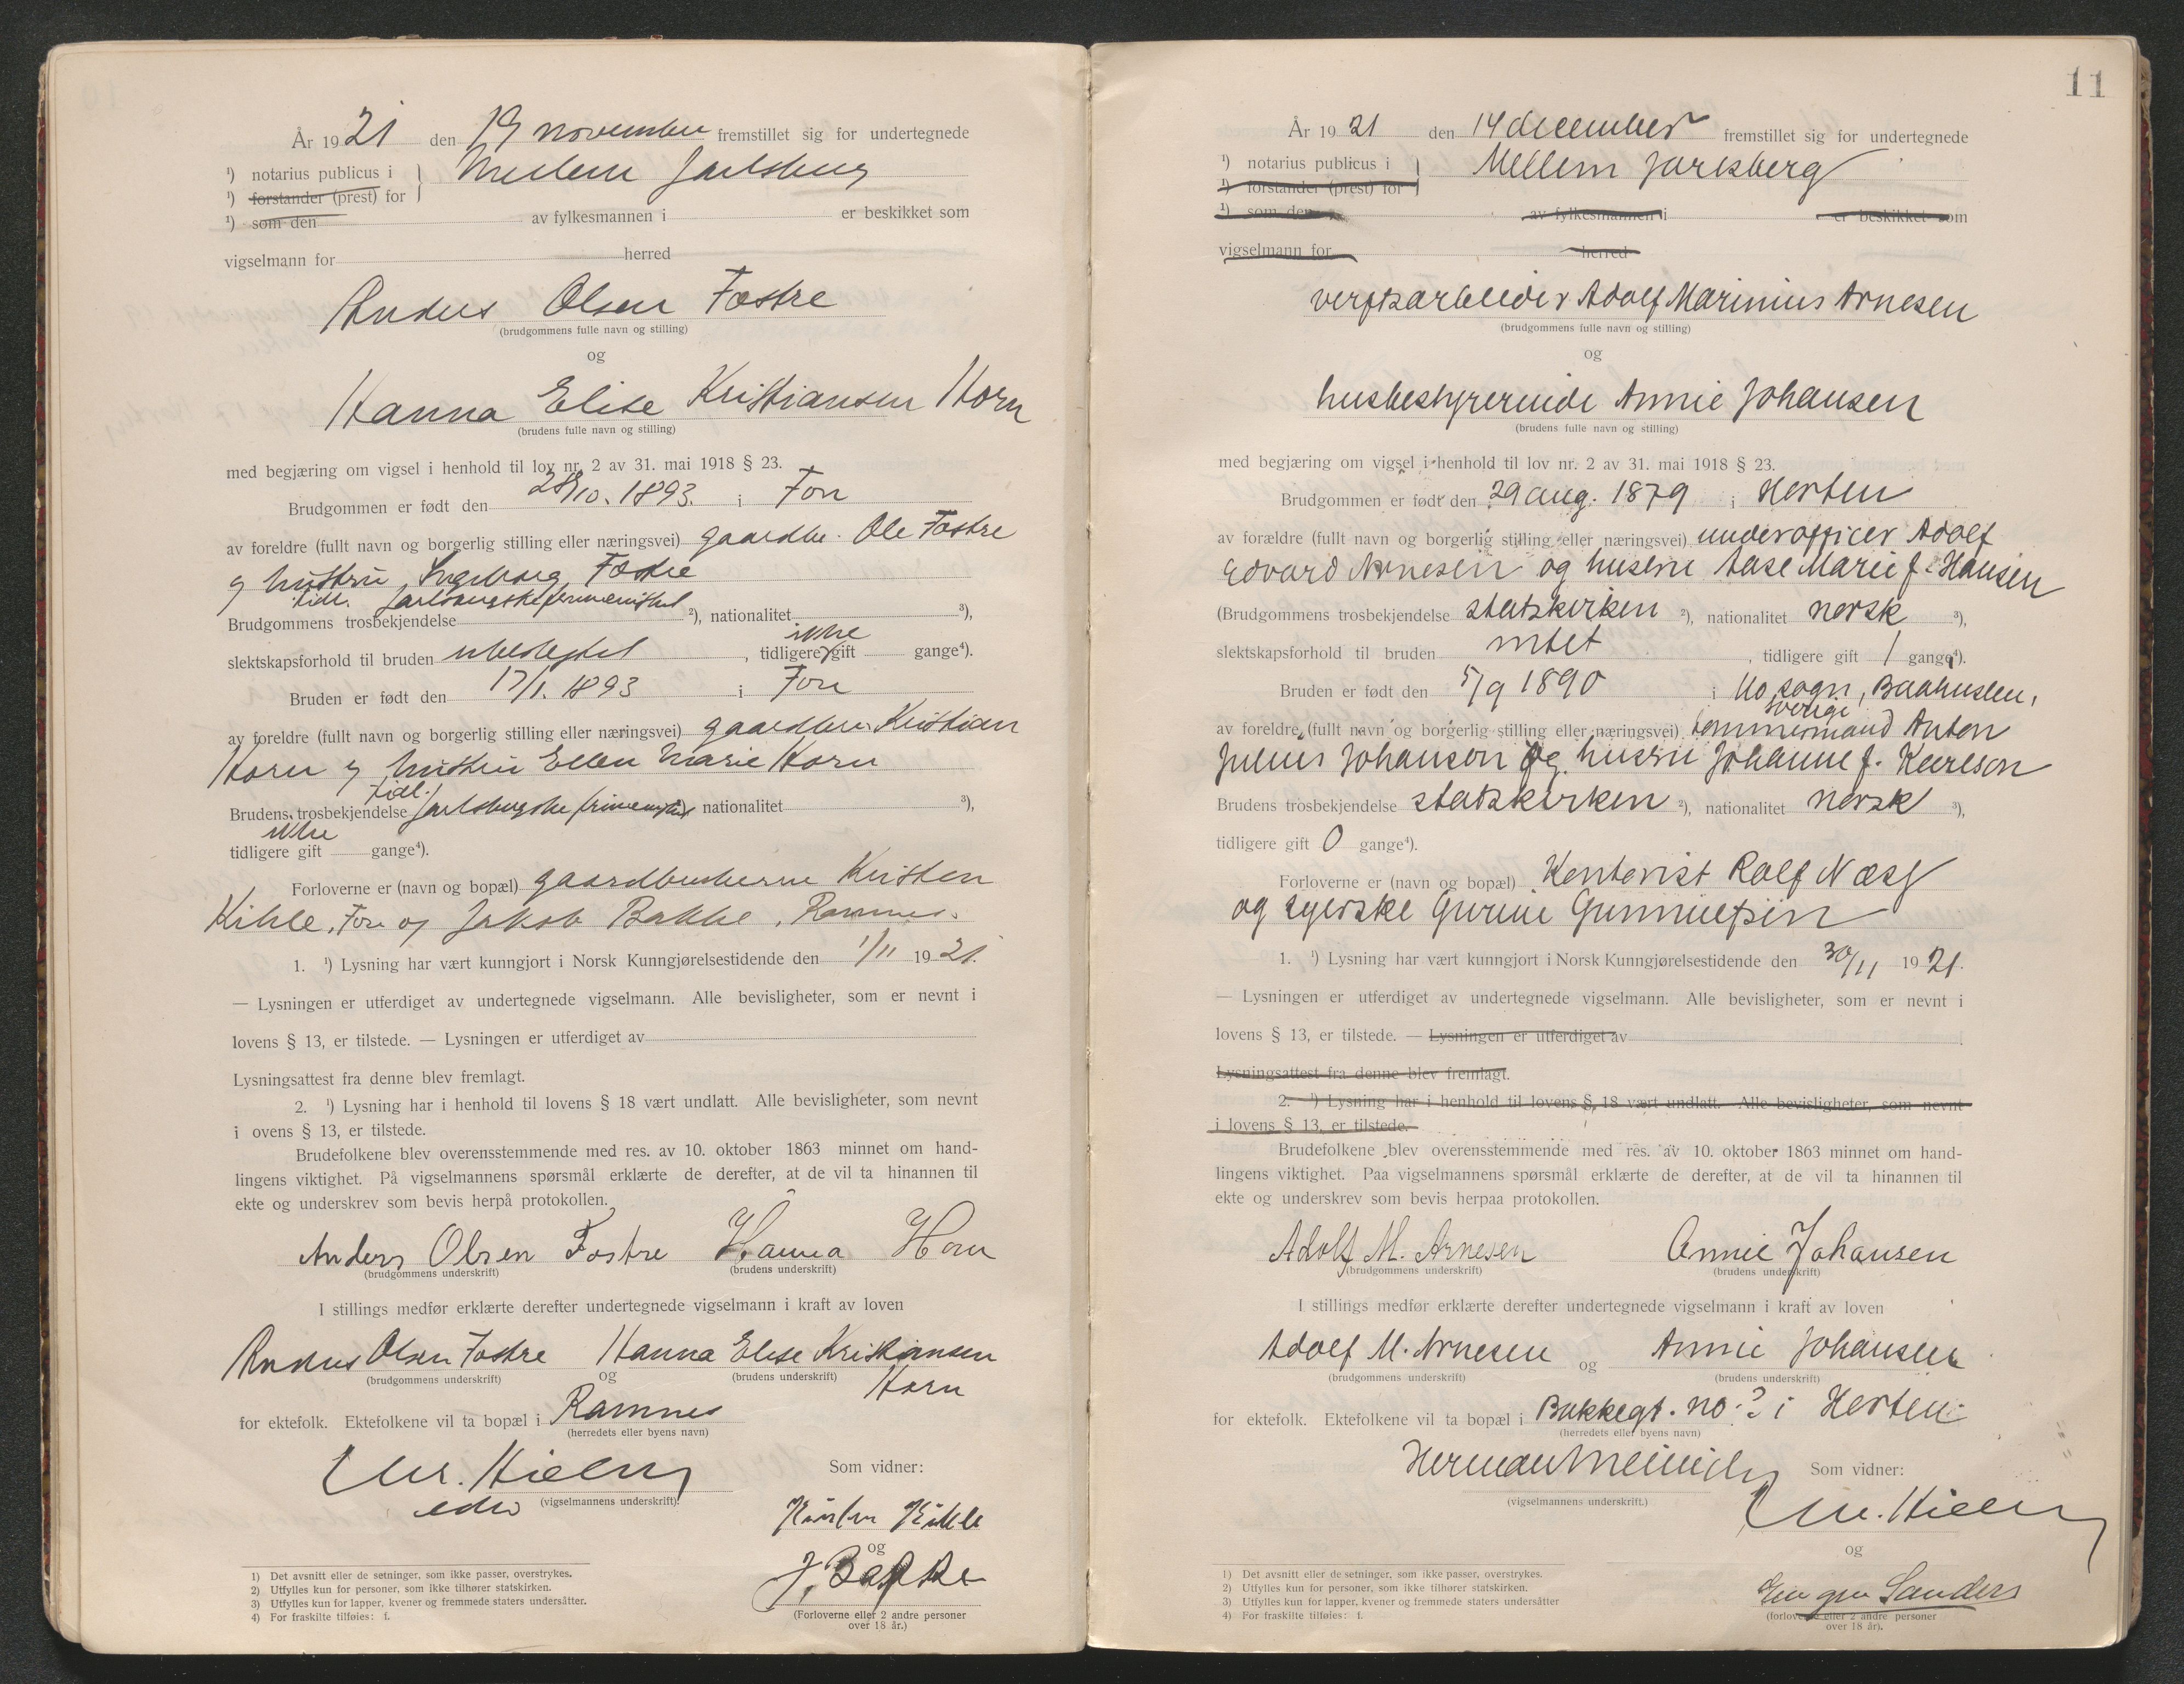 År 1921 den 19 november fremstillet sig for undertegnede
¹) notarius publicus i Mellem Jarlsberg
¹) forstander (prest) for
¹) som den av fylkesmannen i er beskikket som
vigselmann for herred
Anders Olsen Fostre
(brudgommens fulle navn og stilling)
og
Hanna Elise Kristiansen Horn
(brudens fulle navn og stilling)
med begjæring om vigsel i henhold til lov nr. 2 av 31. mai 1918 § 23.
Brudgommen er født den 28/10. 1893. i Fon
av foreldre (fullt navn og borgerlig stilling eller næringsvei) gaardbr. Ole Fostre
og hustru Ingeborg Fostre
tidl. Jarlsbergske frimenighet
Brudgommens trosbekjendelse ²), nationalitet ³),
slektskapsforhold til bruden ubeslegtet, tidligere ikke gift gange⁴).
Bruden er født den 17/1. 1893 i Fon
av foreldre (fullt navn og borgerlig stilling eller næringsvei) gaardbr. Kristian
Horn og hustru Ellen Marie Horn
tidl.
Brudens trosbekjendelse Jarlsbergske frimenighet nationalitet ³),
ikke
tidligere gift gange⁴).
Forloverne er (navn og bopæl) gaardbrukerne Kristen
Kihle, Fon og Jakob Bakke, Ramnes.
1. ¹) Lysning har vært kunngjort i Norsk Kunngjørelsestidende den 1/11 1921.
— Lysningen er utferdiget av undertegnede vigselmann. Alle bevisligheter, som er nevnt i
lovens § 13, er tilstede. — Lysningen er utferdiget av
Lysningsattest fra denne blev fremlagt.
2. ¹) Lysning har i henhold til lovens § 18 vært undlatt. Alle bevisligheter, som nevnt
i ovens § 13, er tilstede.
Brudefolkene blev overensstemmende med res. av 10. oktober 1863 minnet om hand-
lingens viktighet. På vigselmannens spørsmål erklærte de derefter, at de vil ta hinannen til
ekte og underskrev som bevis herpå protokollen.
Anders Olsen Fostre Hanna Horn
(brudgommens underskrift) (brudens underskrift)
I stillings medfør erklærte derefter undertegnede vigselmann i kraft av loven
Anders Olsen Fostre og Hanna Elise Kristiansen
(brudgommens underskrift) (brudens underskrift) Horn
for ektefolk. Ektefolkene vil ta bopæl i Ramnes
(herredets eller byens navn)
Som vidner:
(vigselmannens underskrift)
Kihle
og
J. Bakke
(Forloverne eller 2 andre personer
over 18 år.)
1) Det avsnitt eller de setninger, som ikke passer, overstrykes.
2) Utfylles kun for personer, som ikke tilhører statskirken.
3) Utfylles kun for lapper, kvener og fremmede staters undersåtter.
4) For fraskilte tilføies: f.
11
År 1921 den 14 december fremstillet sig for undertegnede
¹) notarius publicus i Mellem Jarlsberg
¹) forstander (prest) for
¹) som den av fylkesmannen i er beskikket som
vigselmann for herred
verftsarbeider Adolf Marinius Arnesen
(brudgommens fulle navn og stilling)
og
husbestyrerinde Annie Johansen
(brudens fulle navn og stilling)
med begjæring om vigsel i henhold til lov nr. 2 av 31. mai 1918 § 23.
Brudgommen er født den 29 aug. 1879 i Horten
av forældre (fullt navn og borgerlig stilling eller næringsvei) underofficer Adolf
Edvard Arnesen og hustru Aase Marie f. Hansen
(Brudgommens trosbekjendelse statskirken ²), nationalitet norsk ³),
slektskapsforhold til bruden intet, tidligere gift 1 gange⁴).
Bruden er født den 5/9 1890 i Mo sogn, Baahuslen,
Sverige
av foreldre (fullt navn og borgerlig stilling eller næringsvei) tømmermand Anton
Julius Johanson og hustru Johanne f. Karlson
Brudens trosbekjendelse statskirken ²), nationalitet norsk ³),
tidligere gift 0 gange⁴).
Forloverne er (navn og bopæl) Kontorist Rolf Næss
og syerske Gurine Gunnulfsen
1. ¹) Lysning har vært kunngjort i Norsk Kunngjørelsestidende den 30/11 1921.
— Lysningen er utferdiget av undertegnede vigselmann. Alle bevisligheter, som er nevnt i
lovens § 13, er tilstede. — Lysningen er utferdiget av
Lysningsattest fra denne blev fremlagt.
2. ¹) Lysning har i henhold til lovens § 18 vært undlatt. Alle bevisligheter, som nevnt
i lovens § 13, er tilstede.
Brudefolkene blev overensstemmende med res. av 10. oktober 1863 minnet om hand-
lingens viktighet. Paa vigselmannens spørsmål erklærte de derefter, at de vil ta hinannen til
ekte og underskrev som bevis herpaa protokollen.
Adolf M. Arnesen Annie Johansen
(brudgommens underskrift) (brudens underskrift)
I stillings medfør erklærte derefter undertegnede vigselmann i kraft av loven
Adolf M. Arnesen og Annie Johansen
(brudgommens underskrift) (brudens underskrift)
for ektefolk. Ektefolkene vil ta bopæl i Bakkegt. no ? i Horten.
(herredets eller byens navn)
Herman Meinich Som vidner:
(vigselmannens underskrift.)
og
Sanders
(forloverne eller 2 andre personer
over 18 år).
1) Det avsnitt eller de setninger, som ikke passer, overstrykes.
2) Utfylles kun for personer, som ikke tilhører statskirken.
3) Utfylles kun for lapper, kvener og fremmede staters undersåtter
4) For fraskilte tilføies: f.